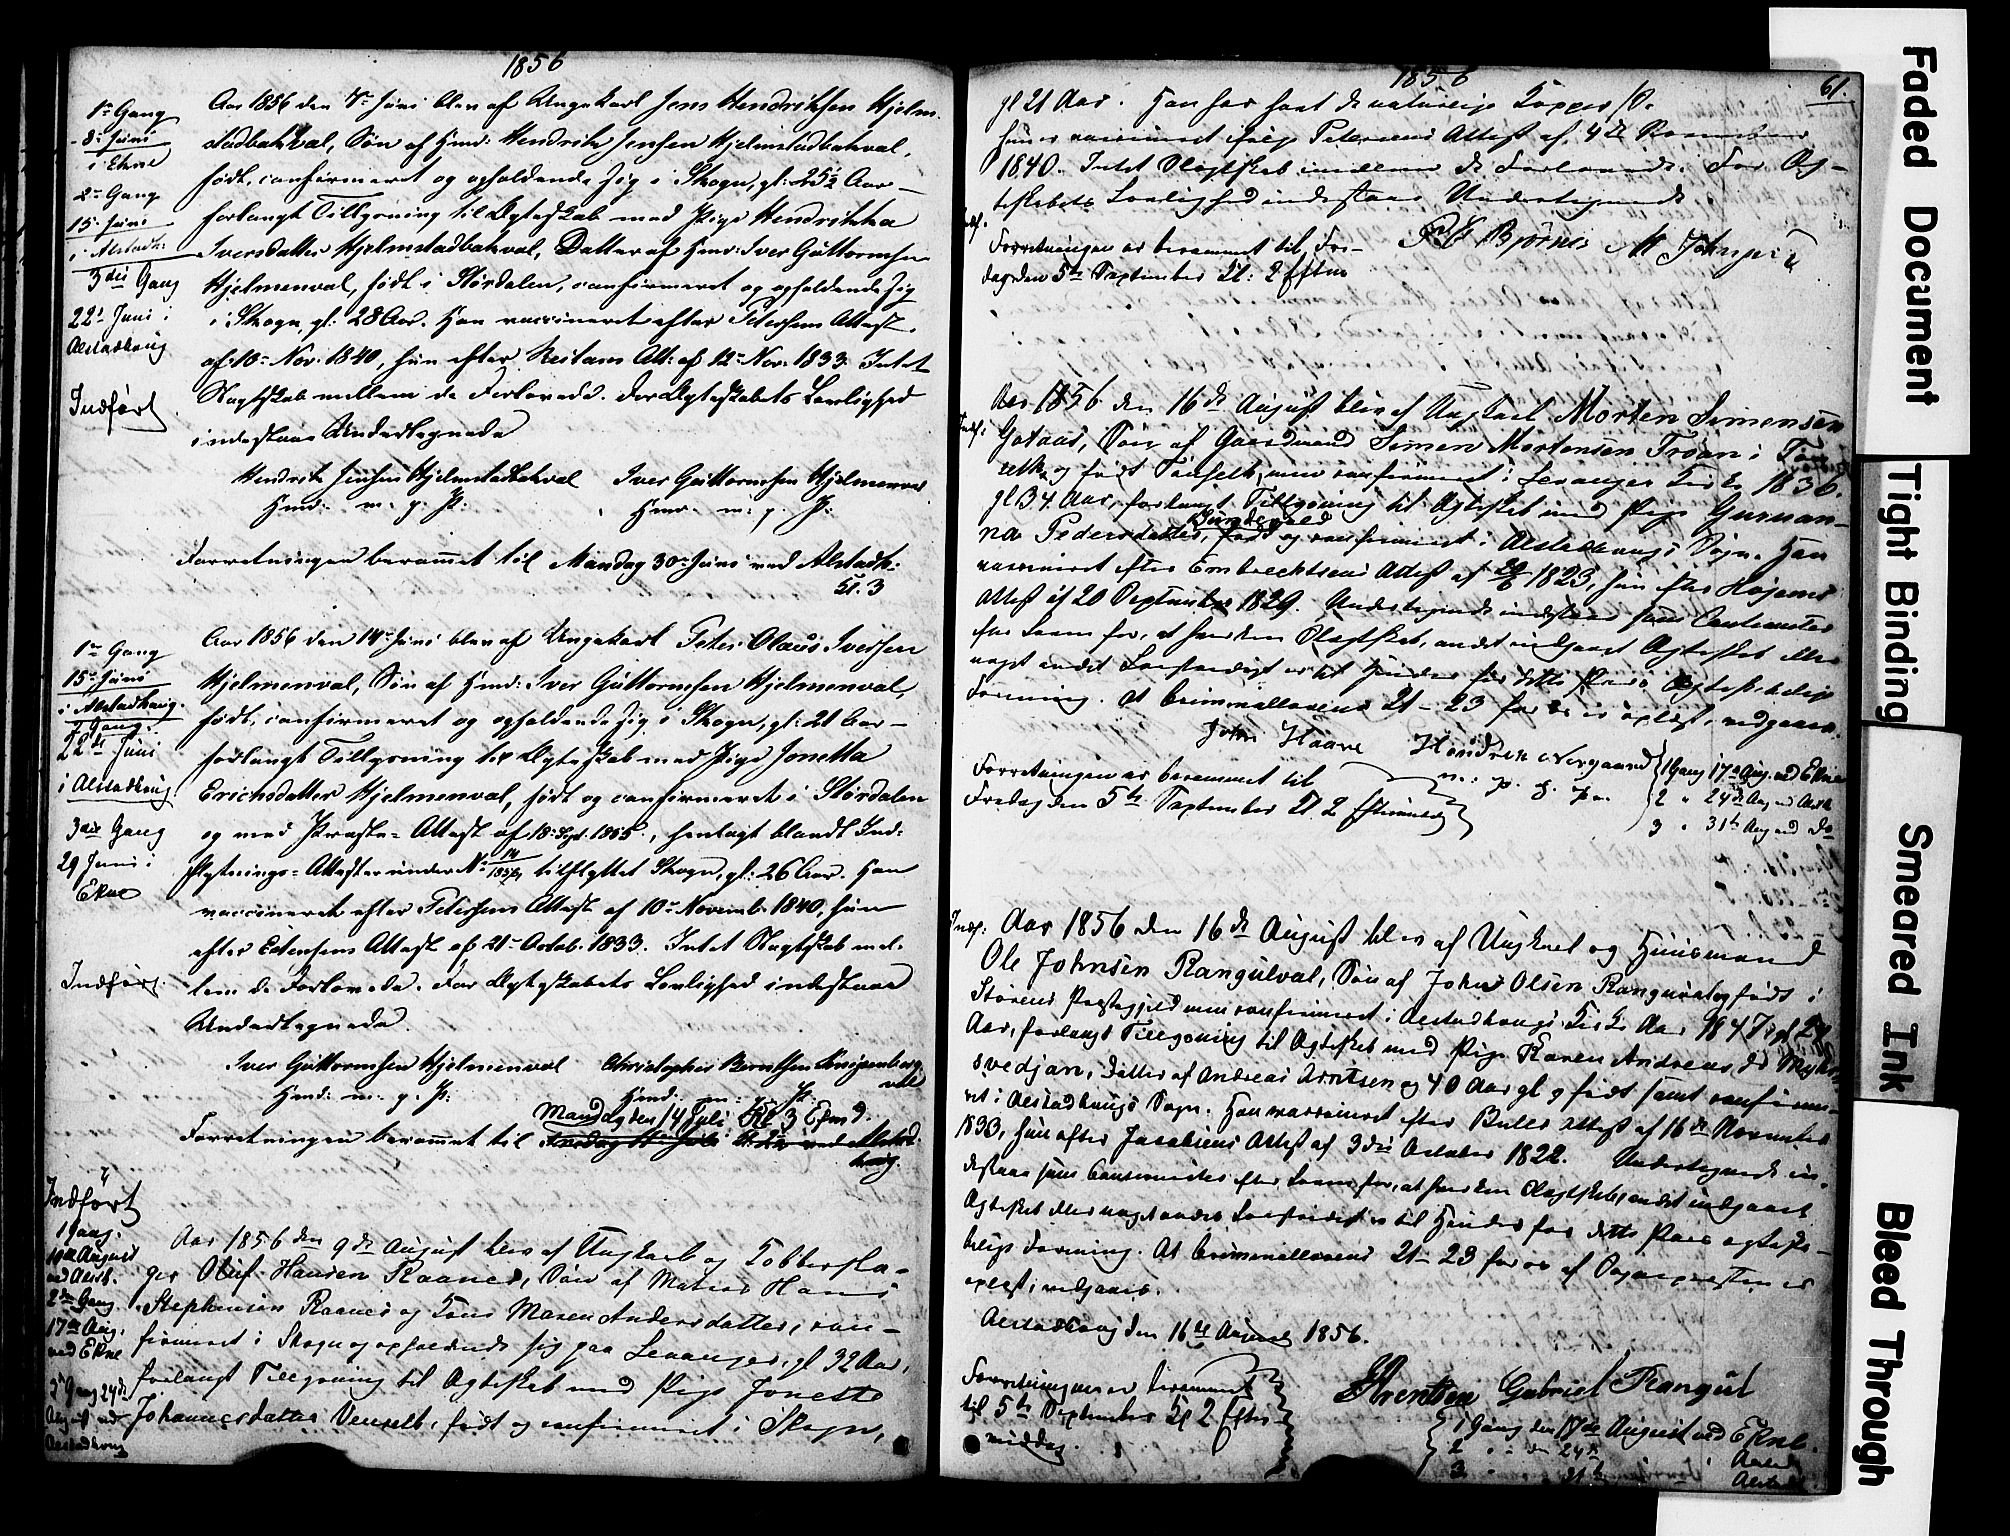 1856
1ste Gang
8de Juni
i Ekne
2den Gang
15. Juni
i Alstadh:
3die Gang
22. Juni i
Alstadhaug
Indført
Aar 1856 den 7de Juni blev af Ungekarl Jens Hendriksen Hjelm-
stadbakval, Søn af Hmd: Hendrik Jensen Hjelmstadbakval,
født, confirmeret og opholdende sig i Skogn, gl: 25½ Aar –
forlangt Tillysning til Ægteskab med Pige Hendrikka
Iversdatter Hjelmstadbakval, Datter af Hmd: Iver Guttormsen
Hjelmenval, født i Størdalen, confirmeret og opholdende sig
i Skogn, gl: 28 Aar. Han vaccineret efter Petersens Attest
af 10de Nov. 1840, hun efter Att: af 12te Nov. 1833. Intet
Slagtskab mellem de Forlovede. For Ægteskabets Lovlighed
indestaae Undertegnede
Hendrik Jensen Hjelmstadbakval Iver Guttormsen Hjelmenval
Hmd: m. p. P: Hmd: m: p. P:
Forretningen berammet til Mandag 30te Juni ved Alstadh:
Kl. 3
1ste Gang
15de Juni
i Alstadhaug.
2 Gang
22de Juni
i Alstadhaug
3die Gang
29 Juni i
Ekne
Indført
Aar 1856 den 14de Juni blev af Ungekarl Peter Olaus Iversen
Hjelmenval, Søn af Hmd: Iver Guttormsen Hjelmenval,
født, confirmeret og opholdende sig i Skogn, gl: 21 Aar –
forlangt Tillysning til Ægteskab med Pige Jonetta
Erichsdatter Hjelmenval, født og confirmeret i Størdalen
og med Præste-Attest af 18. Sept. 1855, henlagt blandt Ind-
flytnings-Attester under No tilflyttet Skogn, gl: 26 Aar. Han
vaccineret efter Petersens Attest af 10de Novemb. 1840, hun
efter Attest af 21de Octob. 1833. Intet Slagtskab mel-
lem de Forlovede. For Ægteskabets Lovlighed indestaae
Undertegnede.
Iver Guttormsen Hjelmenval Christopher Berntsen
Hmd: m. p. P: Hmd: m. p. P:
Mandag den 14 Juli Kl 3 Efmd.
Forretningen berammet til Alstad-
haug.
Indført
1 Gang.
10de August
ved Alstdh.
2den Gang
17de Aug.
ved Ekne
3die Gang 24de
August ved
Alstadhaug
Aar 1856 den 9de August blev af Ungkarl og Kobbersla-
ger Oluf Hansen Raanes, Søn af Hans
Stephensen Raanes og Kone Maren Andersdatter, con-
firmeret i Skogn og opholdende sig paa Levanger, gl 32 Aar,
forlangt Tillysning til Ægteskab med Pige Jonette
Johannesdatter Venseth, født og confirmeret i Skogn,
1856
61.
gl 21 Aar. Han har havt de naturlige Kopper,
hun er vaccineret ifølge Petersens Attest af 4de
1840. Intet Slægtskab imellem de Forlovede. For Æg-
teskabets Lovlighed indestaae Undertegnede
Indf.
Forretningen er berammet til Fre-
dag den 5te September Kl: 2 Efterm
Aar 1856 den 16de August blev af Ungkarl Morten Simonsen
Indf:
Gotaas, Søn af Gaardmand Simen Mortensen Troan i
og født men confirmeret i Levanger Kirke 1836.
gl 34 Aar, forlangt Tillysning til Ægteskab med Pige Gurian-
na Pedersdatter, født og confirmeret i Alstadhaugs Sogn. Han
vaccineret efter Embrechtsens Attest af 1823, hun efter Højems
Attest af 20 September 1829. Undertegnede indestaae som Cautionister
efter Loven for, at hverken Slægtskab, andet indgaaet Ægteskab eller
noget andet Lovstridigt er til Hinder for dette Pars ægteskabelige
Forening. At Criminallovens 21–23 for os er oplæst, vedgaaes.
John Haave Hendrik Norgaard
m: p. P.
Forretningen er berammet til
Fredag den 5te September Kl. 2 Eftermiddag
1 Gang 17de Aug. ved Ekne
2 " 24de Aug ved Alsth
3 " 31te Aug ved Do
Indf:
Aar 1856 den 16de August blev af Ungkarl og Huusmand
Ole Johnsen Rangulval, Søn af John Olsen Rangulval og født i
Størens Præstegjeld men confirmeret i Alstadhaugs Kirke Aar 1847,
Aar, forlangt Tillysning til Ægteskab med Pige Karen Andreasdr
svedjan, Datter af Andreas Arntsen og 40 Aar gl. født samt confirme-
ret i Alstadhaugs Sogn. Han vaccineret efter Bulls Attest af 16de November
1833, hun efter Jacobsens Attest af 3die October 1822. Undertegnede in-
destaae som Cautionister efter Loven for, at hverken Slægtskab, andet indgaaet
Ægteskab eller noget andet Lovstridigt er til Hinder for dette Pars ægteska-
belige Forening. At Criminallovens 21–23 for os af Sognepræsten er
oplæst, vedgaaes.
Alstadhaug den 16de August 1856.
Forretningen er berammet
til 5te September Kl 2 Efter-
middag.
Gabriel Rangul
1 Gang den 17de August ved Ekne.
2 " den 24de " Alstdh
3 " 31te " Alstadh
Faded Document
Tight Binding
Smeared Ink
Bleed Through